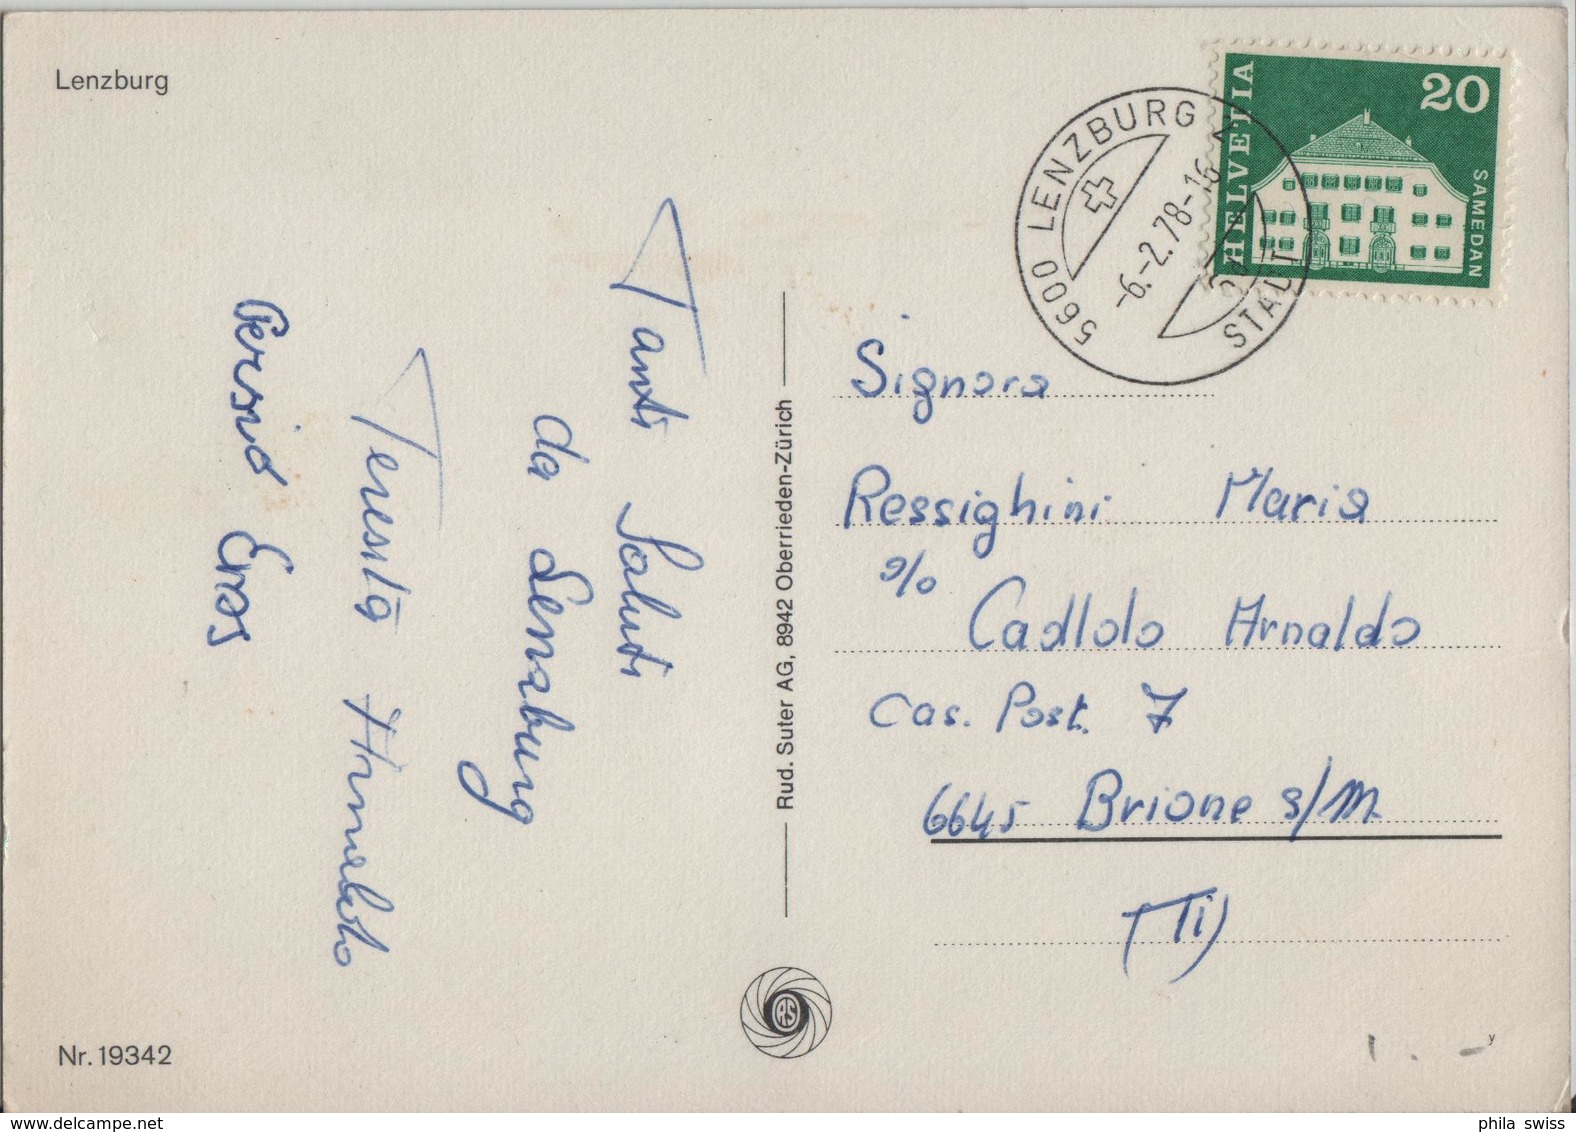 Lenzburg
HELVETIA
20
SAMEDAN
5600 LENZBURG 2
-6.-2.78-16
STADT
Tanti Saluti
da Lenzburg
Teresita
Eros
Rud. Suter AG, 8942 Oberrieden-Zürich
Signora
Ressighini Maria
c/o
Cadlolo Arnaldo
Cas. Post. 7
6645 Brione s/M.
(Ti)
RS
Nr. 19342
y
phila swiss